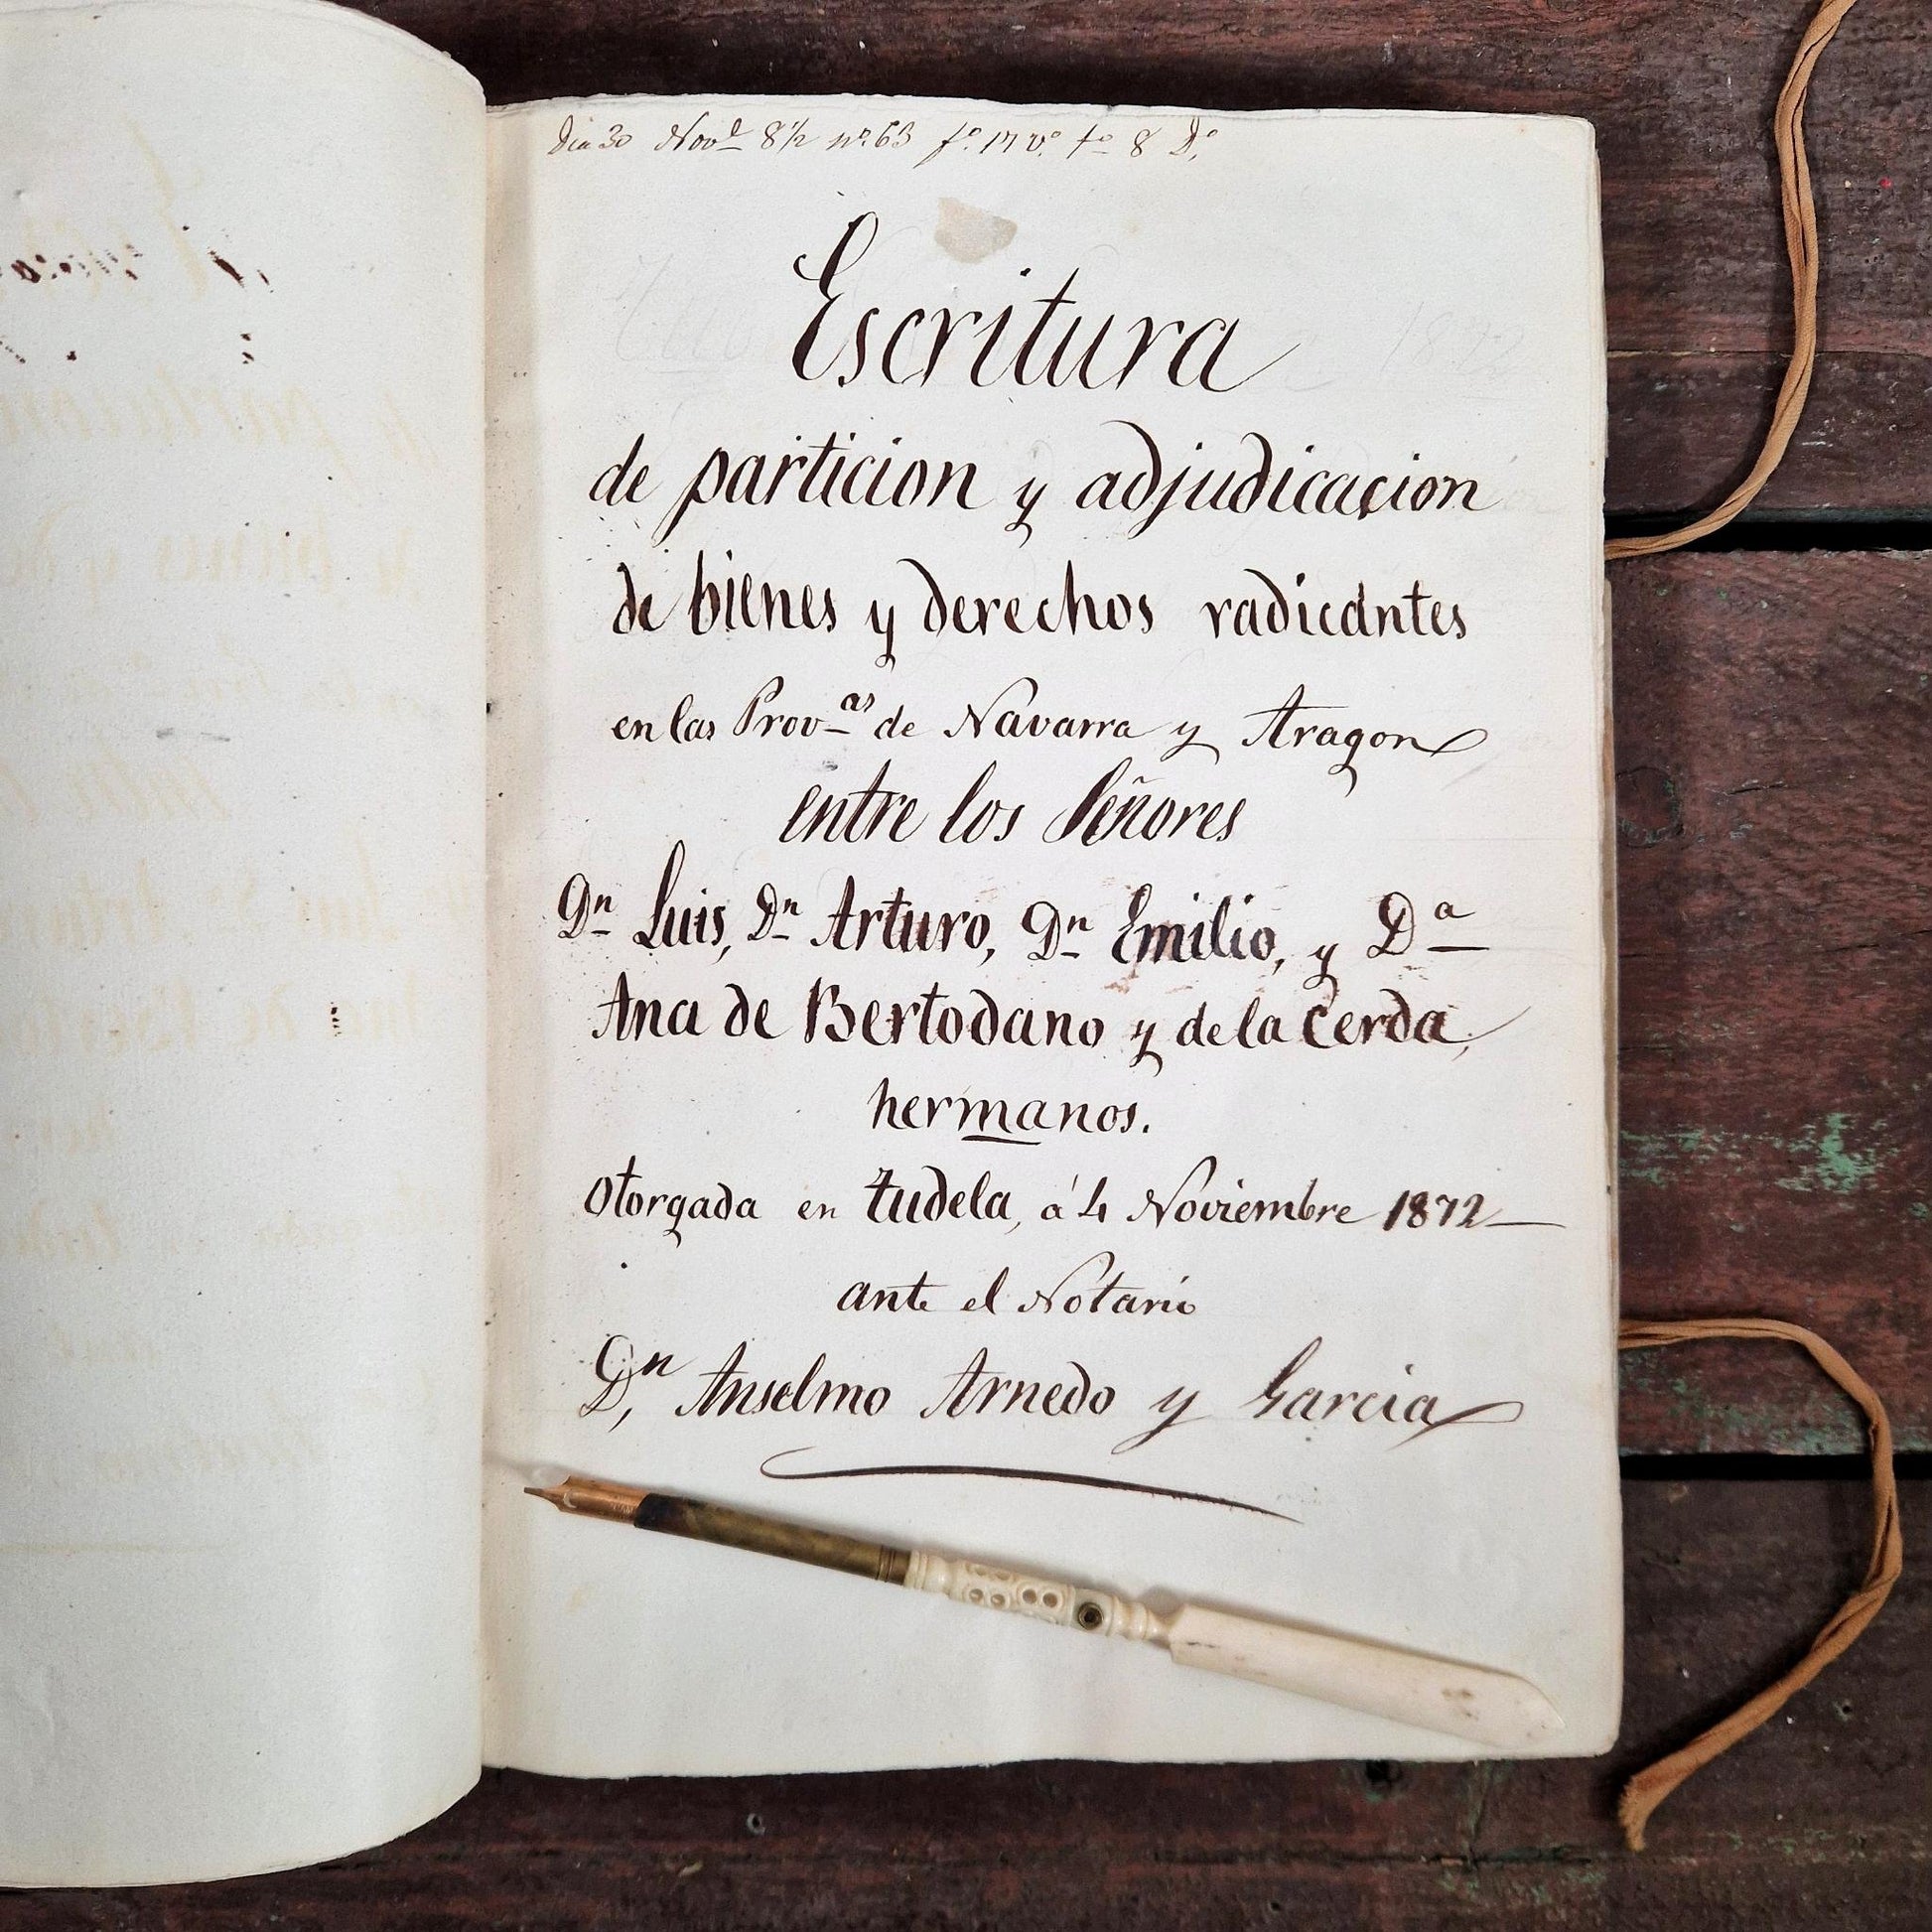 Dia 30 Nov.e 8½ nº 63 fº 17 vº tº 8 Dº
Escritura
de particion y adjudicacion
de bienes y derechos radicantes
en las Prov.as de Navarra y Aragon
entre los Señores
Dn Luis, Dn Arturo, Dn Emilio, y Da
Ana de Bertodano y de la Cerda,
hermanos.
Otorgada en Tudela, á 4 Noviembre 1872
ante el Notario
Dn, Anselmo Arnedo y Garcia